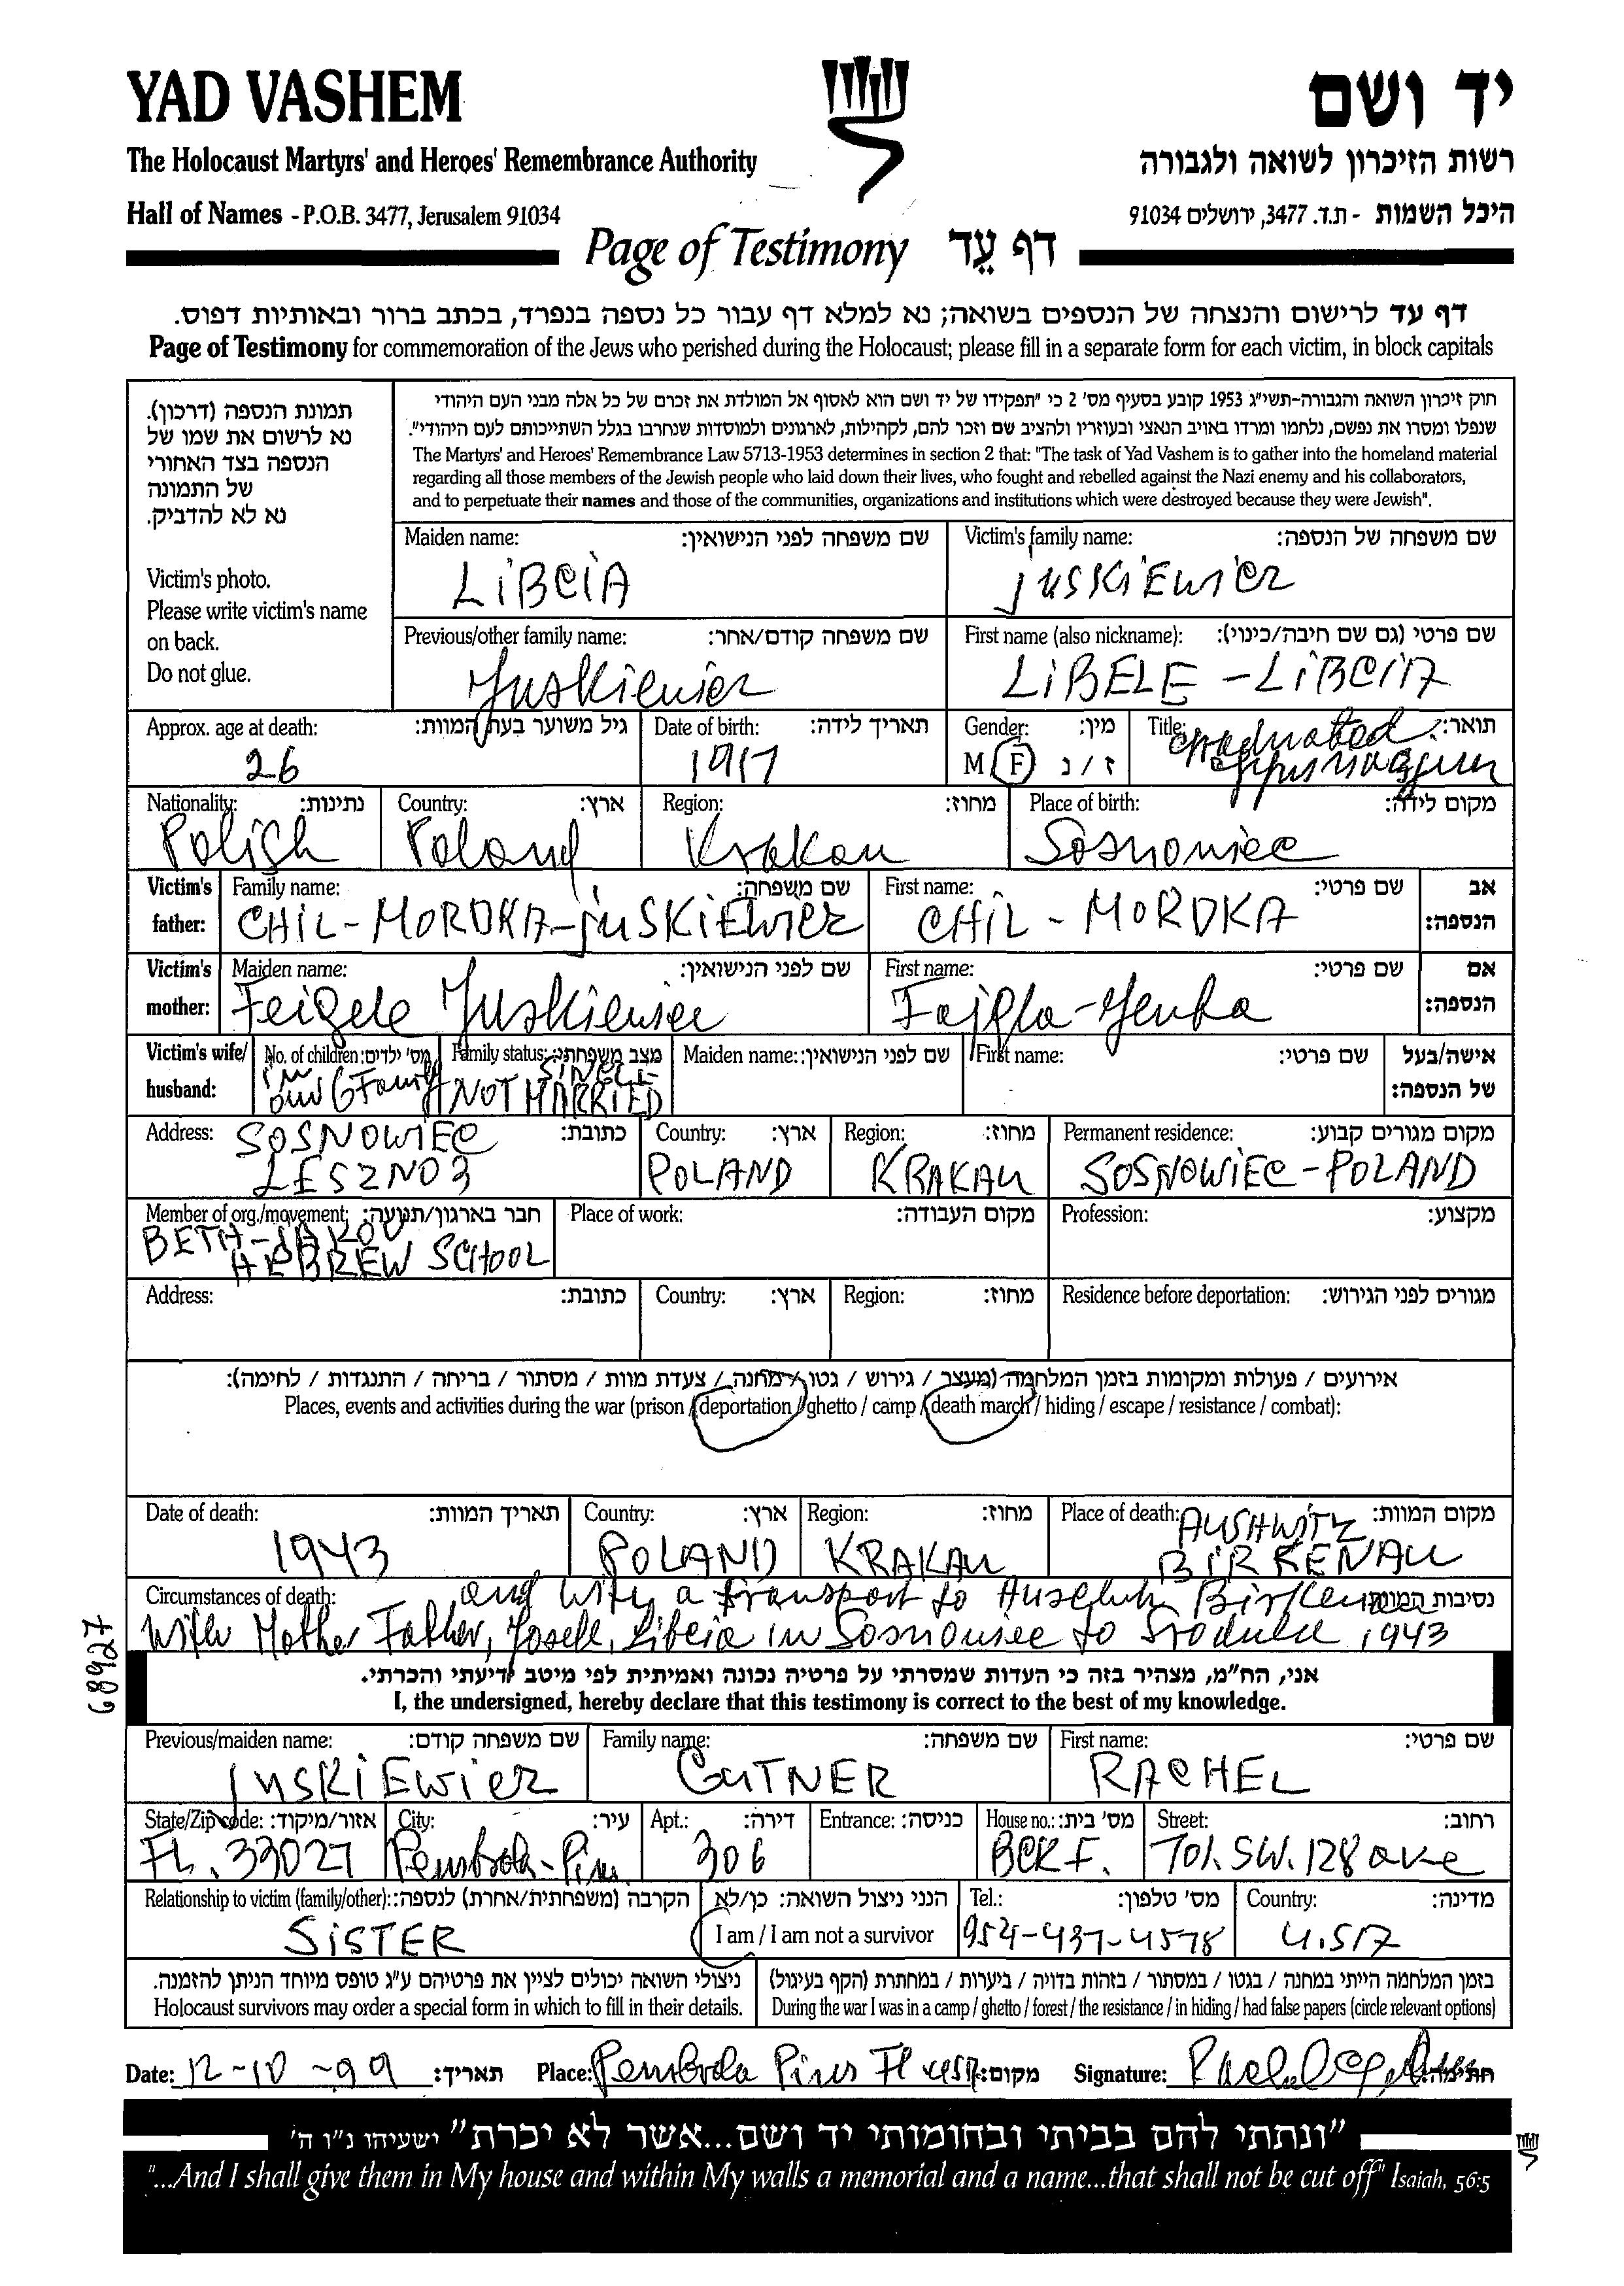 YAD VASHEM
יד ושם
The Holocaust Martyrs' and Heroes' Remembrance Authority
רשות הזיכרון לשואה ולגבורה
Hall of Names - P.O.B. 3477, Jerusalem 91034
היכל השמות - ת.ד. 3477, ירושלים 91034
Page of Testimony דף עֵד
דף עד לרישום והנצחה של הנספים בשואה; נא למלא דף עבור כל נספה בנפרד, בכתב ברור ובאותיות דפוס.
Page of Testimony for commemoration of the Jews who perished during the Holocaust; please fill in a separate form for each victim, in block capitals
תמונת הנספה (דרכון).
נא לרשום את שמו של
הנספה בצד האחורי
של התמונה
נא לא להדביק.
Victim's photo.
Please write victim's name
on back.
Do not glue.
חוק זיכרון השואה והגבורה-תשי"ג 1953 קובע בסעיף מס' 2 כי "תפקידו של יד ושם הוא לאסוף אל המולדת את זכרם של כל אלה מבני העם היהודי
שנפלו ומסרו את נפשם, נלחמו ומרדו באויב הנאצי ובעוזריו ולהציב שם וזכר להם, לקהילות, לארגונים ולמוסדות שנחרבו בגלל השתייכותם לעם היהודי".
The Martyrs' and Heroes' Remembrance Law 5713-1953 determines in section 2 that: "The task of Yad Vashem is to gather into the homeland material
regarding all those members of the Jewish people who laid down their lives, who fought and rebelled against the Nazi enemy and his collaborators,
and to perpetuate their names and those of the communities, organizations and institutions which were destroyed because they were Jewish".
Maiden name: שם משפחה לפני הנישואין: Victim's family name: שם משפחה של הנספה:
LiBCiA jUSKiEWiCZ
Previous/other family name: שם משפחה קודם/אחר: First name (also nickname): שם פרטי (גם שם חיבה/כינוי):
Juskiewicz LiBELE - LiBCiA
Approx. age at death: גיל משוער בעת המוות: Date of birth: תאריך לידה: Gender: מין: Title: תואר:
26 1917 M F ז / נ graduated
Nationality: נתינות: Country: ארץ: Region: מחוז: Place of birth: מקום לידה:
Polish Poland Krakau Sosnowiec
Victim's father: Family name: שם משפחה: First name: שם פרטי: אב הנספה:
CHiL - MORDKA - jUSKiEWiCZ CHiL - MORDKA
Victim's mother: Maiden name: שם לפני הנישואין: First name: שם פרטי: אם הנספה:
Feigele Juskiewicz Fajgla-
Victim's wife/ husband: No. of children: מס' ילדים: Family status: מצב משפחתי: Maiden name: שם לפני הנישואין: First name: שם פרטי: אישה/בעל של הנספה:
SINGLE
NOT MARRIED
Address: כתובת: Country: ארץ: Region: מחוז: Permanent residence: מקום מגורים קבוע:
SOSNOWIEC
LESZNO 3 POLAND KRAKAU SOSNOWIEC - POLAND
Member of org./movement: חבר בארגון/תנועה: Place of work: מקום העבודה: Profession: מקצוע:
BETH-JAKOV
HEBREW SCHOOL
Address: כתובת: Country: ארץ: Region: מחוז: Residence before deportation: מגורים לפני הגירוש:
אירועים / פעולות ומקומות בזמן המלחמה (מעצר / גירוש / גטו / מחנה / צעדת מוות / מסתור / בריחה / התנגדות / לחימה):
Places, events and activities during the war (prison / deportation / ghetto / camp / death march / hiding / escape / resistance / combat):
Date of death: תאריך המוות: Country: ארץ: Region: מחוז: Place of death: מקום המוות:
1943 POLAND KRAKAU AUSHWITZ
BIRKENAU
Circumstances of death: נסיבות המוות:
and with a transport to Auschwitz Birkenau
with Mother Father, Josele, Libcia in Sosnowiec to Srodula 1943
68927
אני, הח"מ, מצהיר בזה כי העדות שמסרתי על פרטיה נכונה ואמיתית לפי מיטב ידיעתי והכרתי.
I, the undersigned, hereby declare that this testimony is correct to the best of my knowledge.
Previous/maiden name: שם משפחה קודם: Family name: שם משפחה: First name: שם פרטי:
jUSKiEWiCZ GUTNER RACHEL
State/Zip code: אזור/מיקוד: City: עיר: Apt.: דירה: Entrance: כניסה: House no.: מס' בית: Street: רחוב:
FL. 33027 306 701. SW. 128 ave
Relationship to victim (family/other): הקרבה (משפחתית/אחרת) לנספה: הנני ניצול השואה: כן/לא Tel.: מס' טלפון: Country: מדינה:
SiSTER I am / I am not a survivor 954-437-4578 U.S.A
ניצולי השואה יכולים לציין את פרטיהם ע"ג טופס מיוחד הניתן להזמנה.
Holocaust survivors may order a special form in which to fill in their details.
בזמן המלחמה הייתי במחנה / בגטו / במסתור / בזהות בדויה / ביערות / במחתרת (הקף בעיגול)
During the war I was in a camp / ghetto / forest / the resistance / in hiding / had false papers (circle relevant options)
Date: 12-10-99 תאריך: Place: מקום: Signature: חתימה:
"ונתתי להם בביתי ובחומותי יד ושם...אשר לא יכרת" ישעיהו נ"ו ה'
"...And I shall give them in My house and within My walls a memorial and a name...that shall not be cut off" Isaiah, 56:5